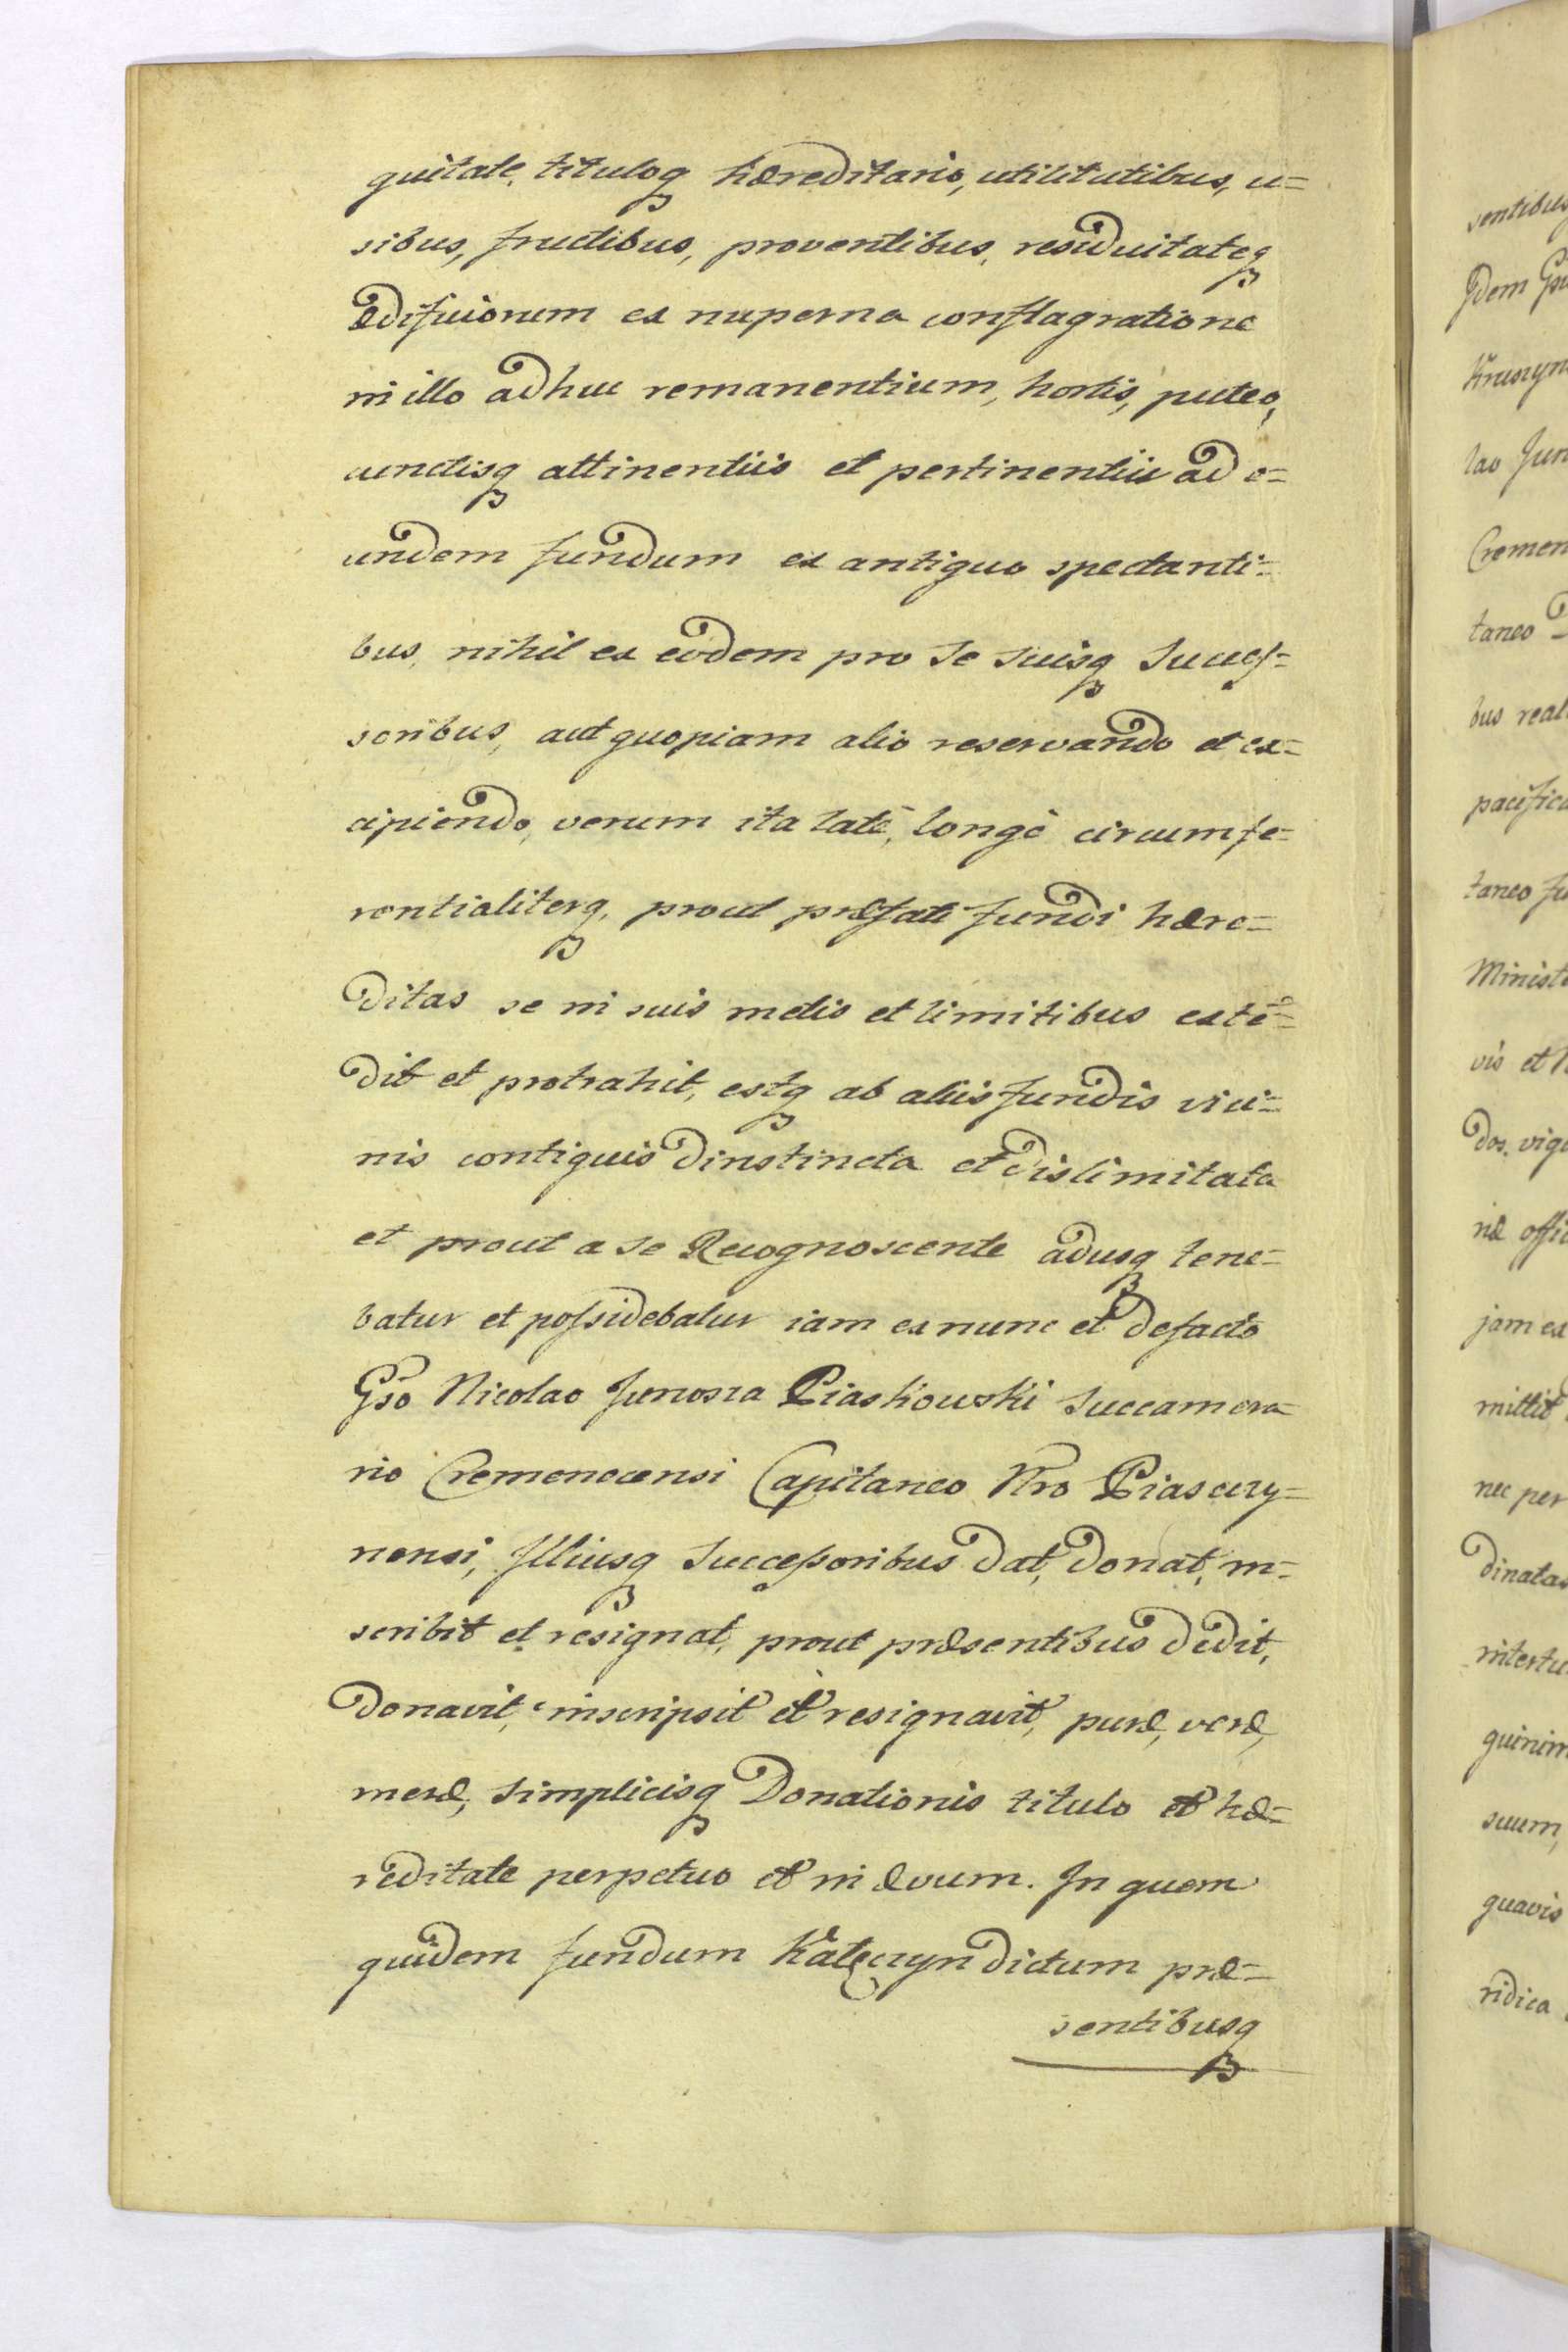 quitate, tituloq hæreditario, utilitutibus, u=
sibus, fructibus, proventibus, residuitateq
Ædificiorum ex nuperna conflagratione
in illo adhuc remanentium, hortis, puteo,
cunctisq attinentiis et pertinentiis ad e=
undem fundum ex antiquo spectanti=
bus, nihil ex eodem pro se suisq Succes=
soribus, aut quopiam alio reservando et ex=
cipiendo, verum ita latè, longè circumfe=
rentialiterq, prout præfati fundi hære=
ditas se in suis metis et limitibus extē=
dit et protrahit, estq ab aliis fundis vici=
nis contiguis dinstincta et dislimitata
et prout a se Recognoscente adusq tene=
batur et possidebatur iam ex nunc et defacto
Gso Nicolao Junosza Piaskowski Succamera=
rio Cremenecensi Capitaneo Nro Piaseczy=
nensi, Illiusq Successoribus dat, donat, in=
scribit et resignat, prout præsentibus dedit,
donavit, inscripsit et resignavit, puræ, veræ,
meræ, simplicisq Donationis titulo et hæ=
reditate perpetuo et in ævum. In quem
quidem fundum Kałęczyn dictum præ=
sentibusq
sentibus
Gdem
Cremen
taneo
bus real
pacifica
taneo
Minist
vis et
dos, vig
næ offi
jam ex
mittit
nec per
dinatas
intertu
quinim
suum,
quavis
ridica